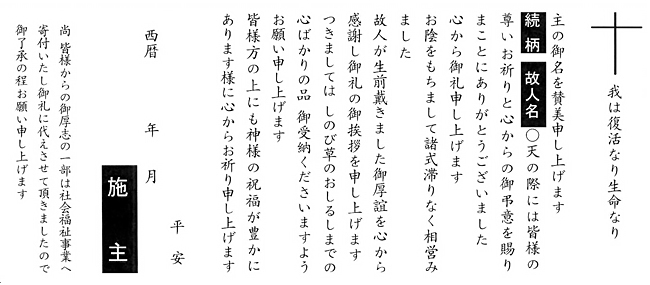 我は復活なり生命なり
主の御名を賛美申し上げます
続柄 故人名 〇天の際には皆様の
尊いお祈りと心からの御弔意を賜り
まことにありがとうございました
心から御礼申し上げます
お陰をもちまして諸式滞りなく相営み
ました
故人が生前戴きました御厚誼を心から
感謝し御礼の御挨拶を申し上げます
つきましては しのび草のおしるしまでの
心ばかりの品 御受納くださいますよう
お願い申し上げます
皆様方の上にも神様の祝福が豊かに
あります様に心からお祈り申し上げます
平安
西暦 年 月
施主
尚 皆様からの御厚志の一部は社会福祉事業へ
寄付いたし御礼に代えさせて頂きましたので
御了承の程お願い申し上げます